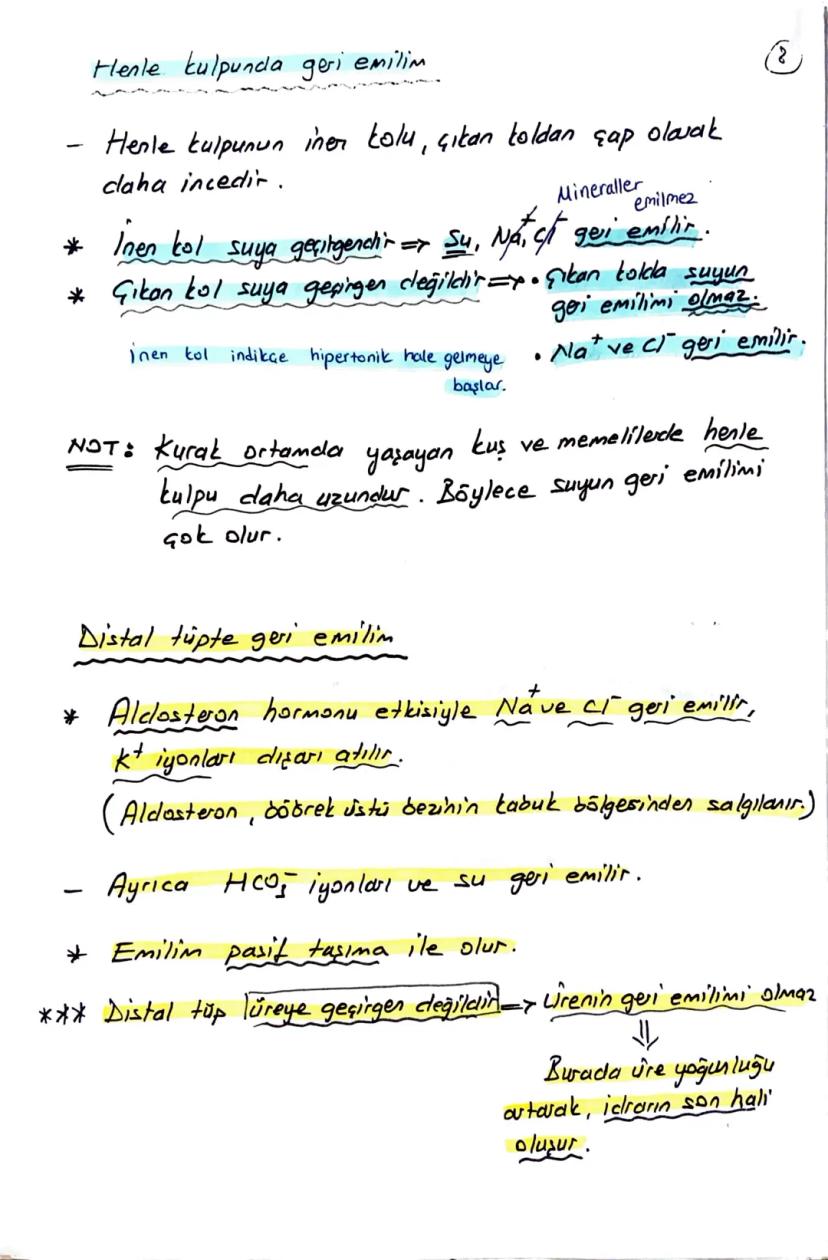 Henle kulpunda geri emilim
8
- Henle kulpunun inen kolu, çıkan koldan çap olarak
daha incedir.
Mineraller
emilmez
* İnen kol suya geçirgendir ⇒ Su, Na⁺, Cl⁻ geri emilir.
* Çıkan kol suya geçirgen değildir ⇒ • Çıkan kolda suyun
geri emilimi olmaz.
• Na⁺ ve Cl⁻ geri emilir.
inen kol indikçe hipertonik hale gelmeye
başlar.
NOT: Kurak ortamda yaşayan kuş ve memelilerde henle
kulpu daha uzundur. Böylece suyun geri emilimi
çok olur.
Distal tüpte geri emilim
* Aldosteron hormonu etkisiyle Na⁺ ve Cl⁻ geri emilir,
K⁺ iyonları dışarı atılır.
(Aldosteron, böbrek üstü bezinin kabuk bölgesinden salgılanır.)
- Ayrıca HCO₃⁻ iyonları ve su geri emilir.
* Emilim pasif taşıma ile olur.
*** Distal tüp üreye geçirgen değildir → Ürenin geri emilimi olmaz
⇓
Burada üre yoğunluğu
artarak, idrarın son hali
oluşur.